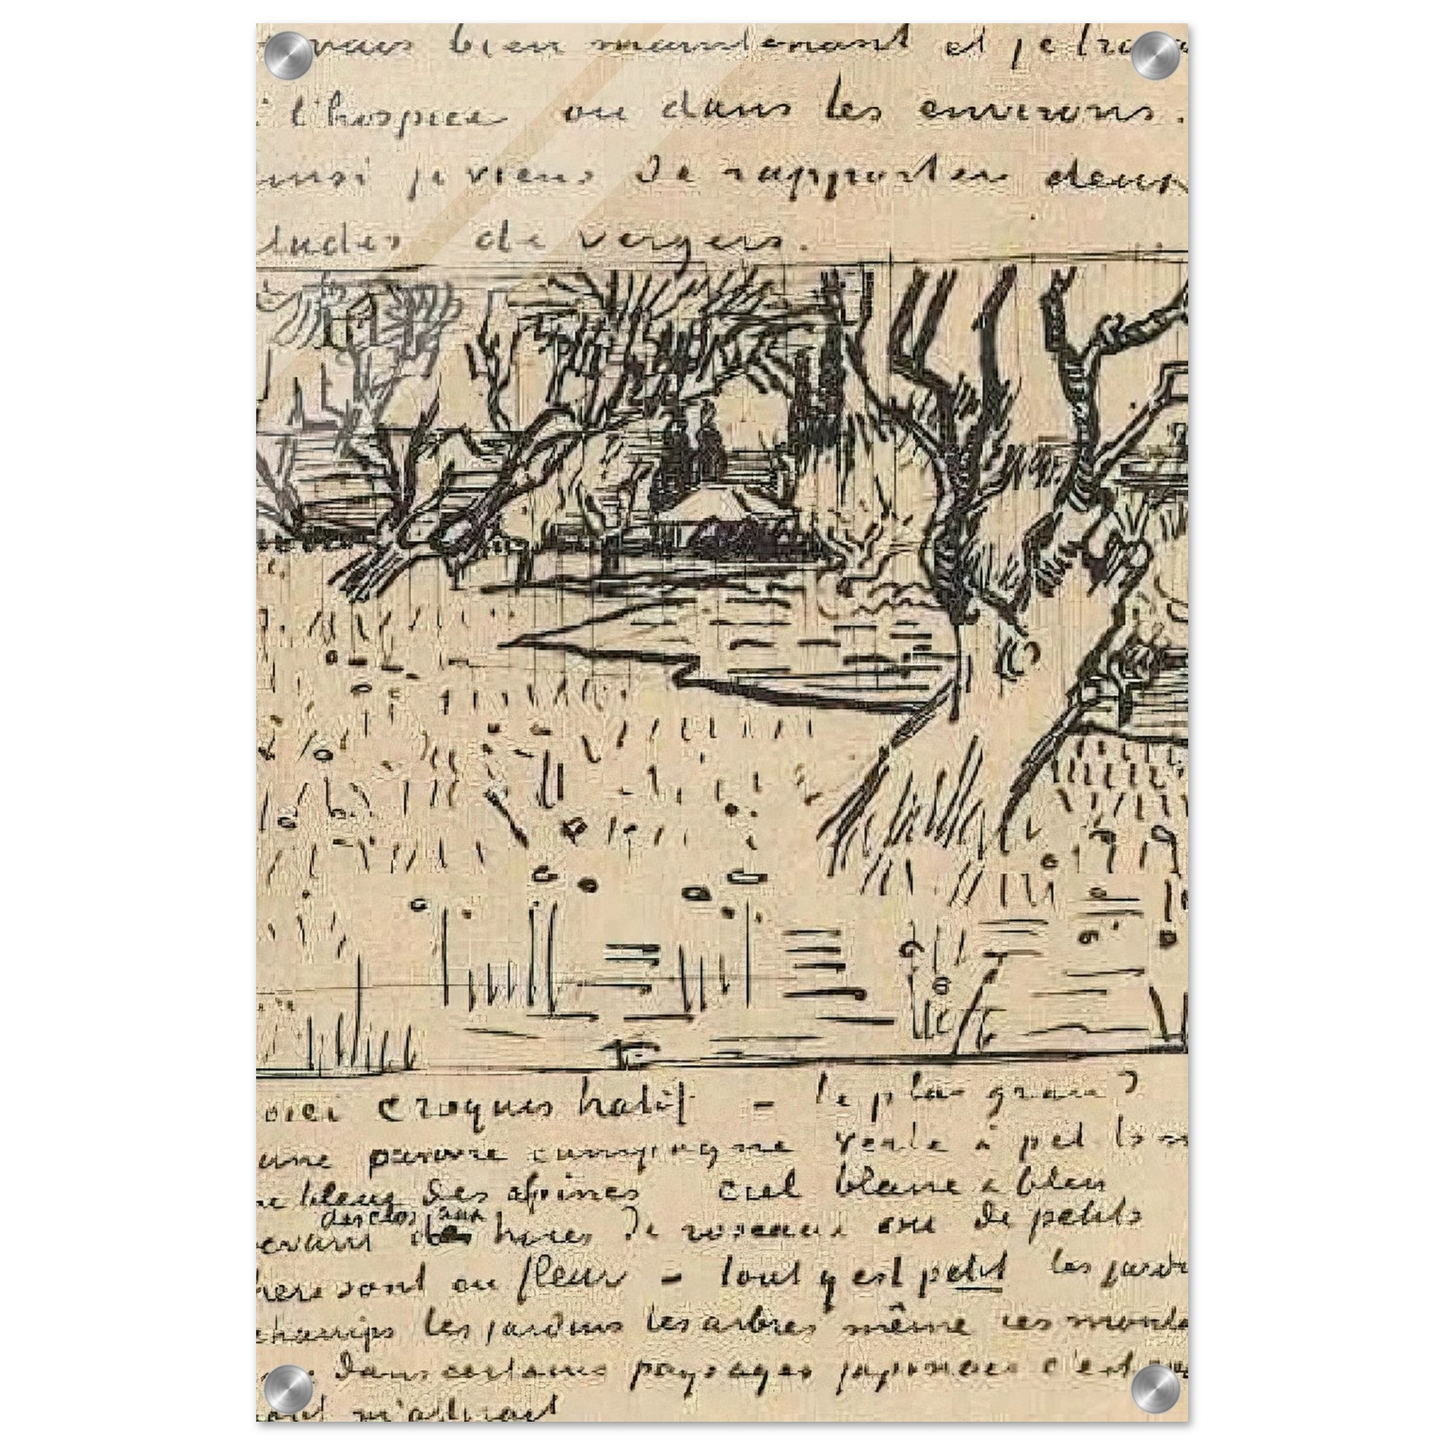 vais bien maintenant et je trava
l'hospice ou dans les environs.
insi je viens de rapporter deux
tudes de vergers.
oici croquis hatif – le plus grand
une pauvre campagne verte à pet
bleus des alpines ciel blanc & bleu
des clos aux
evant haies de roseaux où de petits
chers sont en fleur – tout y est petit les jardi
champs les jardins les arbres même ces monta
dans certains paysages japonais c'est
m'attirait